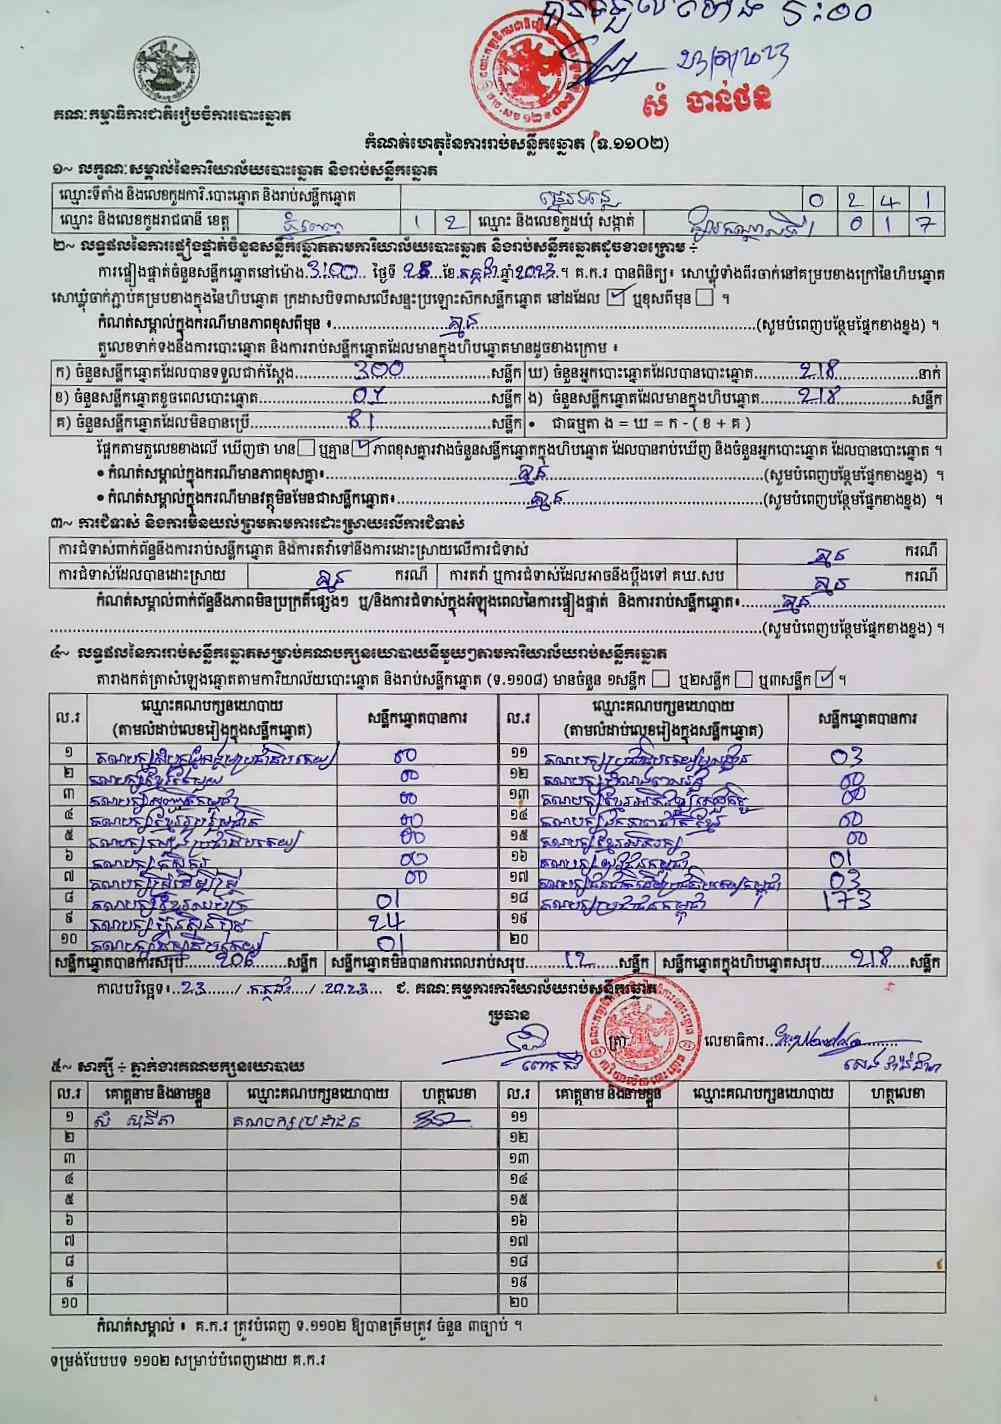 ម៉ោង 5:00
23/0៧/២០២៣
សំ ចាន់ថន
គណៈកម្មាធិការជាតិរៀបចំការបោះឆ្នោត
កំណត់ហេតុនៃការរាប់សន្លឹកឆ្នោត (ទ.១១០២)
១~ លក្ខណៈសម្គាល់នៃការិយាល័យបោះឆ្នោត និងរាប់សន្លឹកឆ្នោត
ឈ្មោះទីតាំង និងលេខកូដការិ.បោះឆ្នោត និងរាប់សន្លឹកឆ្នោត 0 2 4 1
ឈ្មោះ និងលេខកូដរាជធានី ខេត្ត ភ្នំពេញ 1 2 ឈ្មោះ និងលេខកូដឃុំ សង្កាត់ 0 1 7
២~ លទ្ធផលនៃការផ្ទៀងផ្ទាត់ចំនួនសន្លឹកឆ្នោតតាមការិយាល័យបោះឆ្នោត និងរាប់សន្លឹកឆ្នោតដូចខាងក្រោម ÷
ការផ្ទៀងផ្ទាត់ចំនួនសន្លឹកឆ្នោតនៅម៉ោង 3:00 ថ្ងៃទី 23 ខែ កក្កដា ឆ្នាំ 2023 ។ គ.ក.រ បានពិនិត្យ៖ សោឃ្លុំទាំងពីរចាក់នៅគម្របខាងក្រៅនៃហិបឆ្នោត
សោឃ្លុំចាក់ភ្ជាប់គម្របខាងក្នុងនៃហិបឆ្នោត ក្រដាសបិទពាសលើសន្ទះប្រឡោះសិកសន្លឹកឆ្នោត នៅដដែល ☑ ឬខុសពីមុន ☐ ។
កំណត់សម្គាល់ក្នុងករណីមានភាពខុសពីមុន ៖ គ្មាន (សូមបំពេញបន្ថែមផ្នែកខាងខ្នង) ។
តួលេខទាក់ទងនឹងការបោះឆ្នោត និងការរាប់សន្លឹកឆ្នោតដែលមានក្នុងហិបឆ្នោតមានដូចខាងក្រោម ៖
ក) ចំនួនសន្លឹកឆ្នោតដែលបានទទួលជាក់ស្ដែង 300 សន្លឹក ឃ) ចំនួនអ្នកបោះឆ្នោតដែលបានបោះឆ្នោត 218 នាក់
ខ) ចំនួនសន្លឹកឆ្នោតខូចពេលបោះឆ្នោត 01 សន្លឹក ង) ចំនួនសន្លឹកឆ្នោតដែលមានក្នុងហិបឆ្នោត 218 សន្លឹក
គ) ចំនួនសន្លឹកឆ្នោតដែលមិនបានប្រើ 81 សន្លឹក • ជាធម្មតា ង = ឃ = ក - ( ខ + គ )
ផ្អែកតាមតួលេខខាងលើ ឃើញថា មាន ☐ ឬគ្មាន ☑ ភាពខុសគ្នារវាងចំនួនសន្លឹកឆ្នោតក្នុងហិបឆ្នោត ដែលបានរាប់ឃើញ និងចំនួនអ្នកបោះឆ្នោត ដែលបានបោះឆ្នោត ។
• កំណត់សម្គាល់ក្នុងករណីមានភាពខុសគ្នា៖ គ្មាន (សូមបំពេញបន្ថែមផ្នែកខាងខ្នង) ។
• កំណត់សម្គាល់ក្នុងករណីមានវត្ថុមិនមែនជាសន្លឹកឆ្នោត៖ គ្មាន (សូមបំពេញបន្ថែមផ្នែកខាងខ្នង) ។
៣~ ការជំទាស់ និងការមិនយល់ព្រមតាមការដោះស្រាយលើការជំទាស់
ការជំទាស់ពាក់ព័ន្ធនឹងការរាប់សន្លឹកឆ្នោត និងការតវ៉ាទៅនឹងការដោះស្រាយលើការជំទាស់ គ្មាន ករណី
ការជំទាស់ដែលបានដោះស្រាយ គ្មាន ករណី ការតវ៉ា ឬការជំទាស់ដែលអាចនឹងប្ដឹងទៅ គឃ.សប គ្មាន ករណី
កំណត់សម្គាល់ពាក់ព័ន្ធនឹងភាពមិនប្រក្រតីផ្សេងៗ ឬ/និងការជំទាស់ក្នុងអំឡុងពេលនៃការផ្ទៀងផ្ទាត់ និងការរាប់សន្លឹកឆ្នោត៖ គ្មាន
(សូមបំពេញបន្ថែមផ្នែកខាងខ្នង) ។
៤~ លទ្ធផលនៃការរាប់សន្លឹកឆ្នោតសម្រាប់គណបក្សនយោបាយនីមួយៗតាមការិយាល័យរាប់សន្លឹកឆ្នោត
តារាងកត់ត្រាសំឡេងឆ្នោតតាមការិយាល័យបោះឆ្នោត និងរាប់សន្លឹកឆ្នោត (ទ.១១០៨) មានចំនួន ១សន្លឹក ☐ ឬ២សន្លឹក ☐ ឬ៣សន្លឹក ☑ ។
ល.រ ឈ្មោះគណបក្សនយោបាយ (តាមលំដាប់លេខរៀងក្នុងសន្លឹកឆ្នោត) សន្លឹកឆ្នោតបានការ ល.រ ឈ្មោះគណបក្សនយោបាយ (តាមលំដាប់លេខរៀងក្នុងសន្លឹកឆ្នោត) សន្លឹកឆ្នោតបានការ
១ 00 ១១ 03
២ គណបក្សខ្មែរតែមួយ 00 ១២ 00
៣ 00 ១៣ 00
៤ 00 ១៤ 00
៥ 00 ១៥ 00
៦ គណបក្សកសិករ 00 ១៦ 01
៧ គណបក្សស្ត្រីដើម្បីស្ត្រី 00 ១៧ 03
៨ 01 ១៨ គណបក្សប្រជាជនកម្ពុជា 173
៩ គណបក្សហ៊្វុនស៊ិនប៉ិច 24 ១៩
១០ 01 ២០
សន្លឹកឆ្នោតបានការសរុប 206 សន្លឹក សន្លឹកឆ្នោតមិនបានការពេលរាប់សរុប 12 សន្លឹក សន្លឹកឆ្នោតក្នុងហិបឆ្នោតសរុប 218 សន្លឹក
កាលបរិច្ឆេទ៖ 23 / កក្កដា / 2023 ជ. គណៈកម្មការការិយាល័យរាប់សន្លឹកឆ្នោត
ប្រធាន
ត្រា លេខាធិការ
៥~ សាក្សី ÷ ភ្នាក់ងារគណបក្សនយោបាយ
ល.រ គោត្តនាម និងនាមខ្លួន ឈ្មោះគណបក្សនយោបាយ ហត្ថលេខា ល.រ គោត្តនាម និងនាមខ្លួន ឈ្មោះគណបក្សនយោបាយ ហត្ថលេខា
១ សំ សុនីតា គណបក្សប្រជាជន ១១
២ ១២
៣ ១៣
៤ ១៤
៥ ១៥
៦ ១៦
៧ ១៧
៨ ១៨
៩ ១៩
១០ ២០
កំណត់សម្គាល់ ៖ គ.ក.រ ត្រូវបំពេញ ទ.១១០២ ឱ្យបានត្រឹមត្រូវ ចំនួន ៣ច្បាប់ ។
ទម្រង់បែបបទ ១១០២ សម្រាប់បំពេញដោយ គ.ក.រ